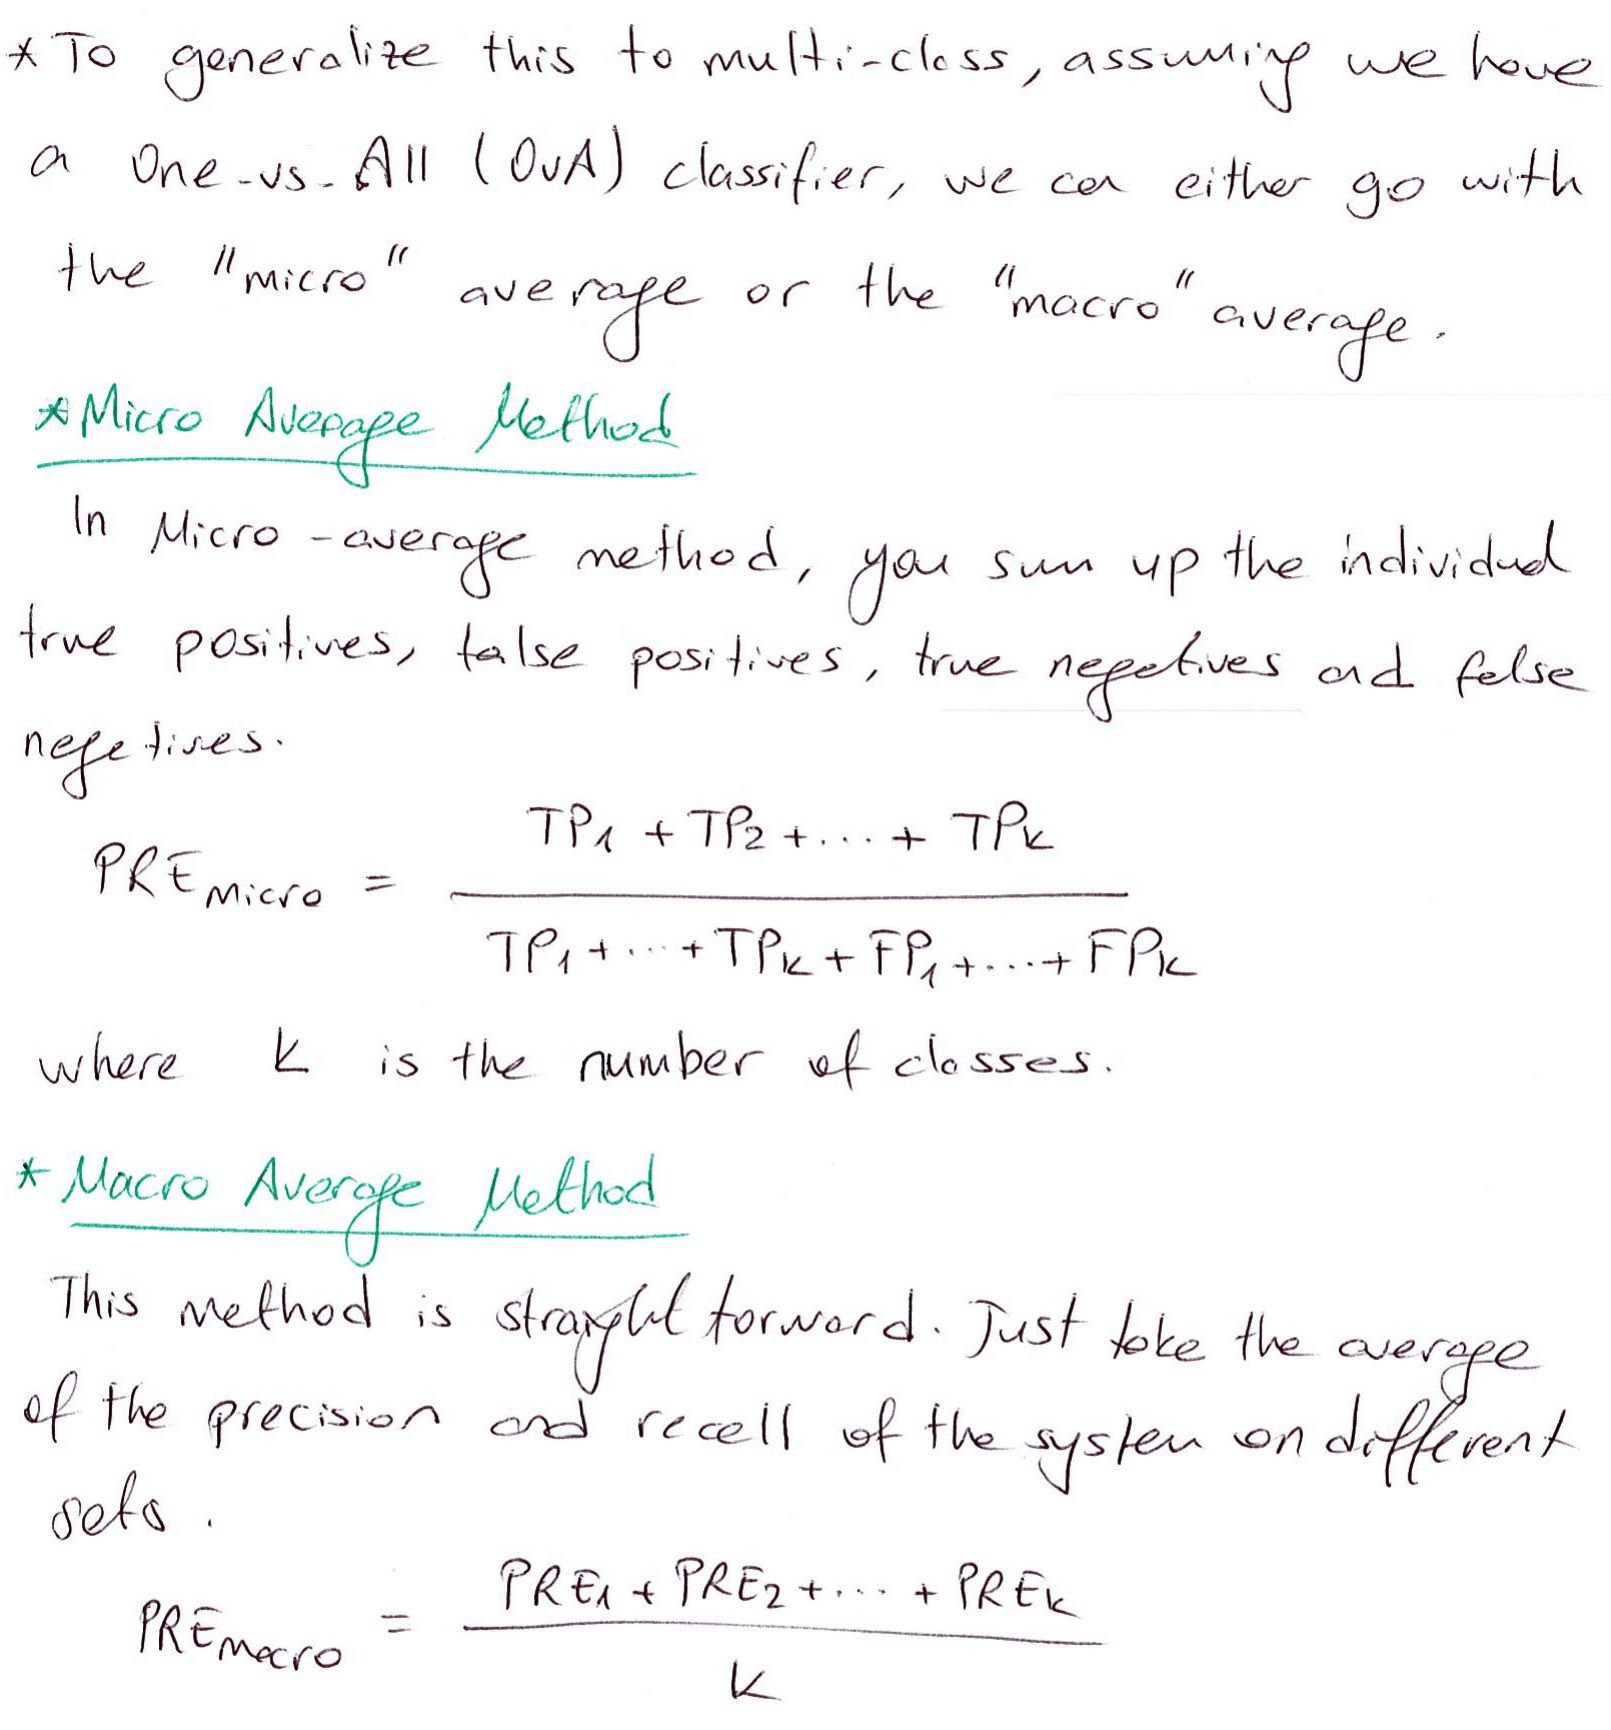 * To generalize this to multi-class, assuming we have
a One-vs-All (OvA) classifier, we can either go with
the "micro" average or the "macro" average.
* Micro Average Method
In Micro-average method, you sum up the individual
true positives, false positives, true negatives and false
negatives.
TP1 + TP2 + ... + TPk
PREmicro =
TP1 + ... + TPk + FP1 + ... + FPk
where k is the number of classes.
* Macro Average Method
This method is straight forward. Just take the average
of the precision and recall of the system on different
sets.
PRE1 + PRE2 + ... + PREk
PREmacro =
k